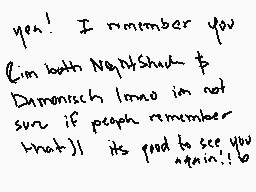 yea! I remember you
(im both NightShade &
Damonisch lmao im not
sure if people remember
that)) its good to see you
again!!